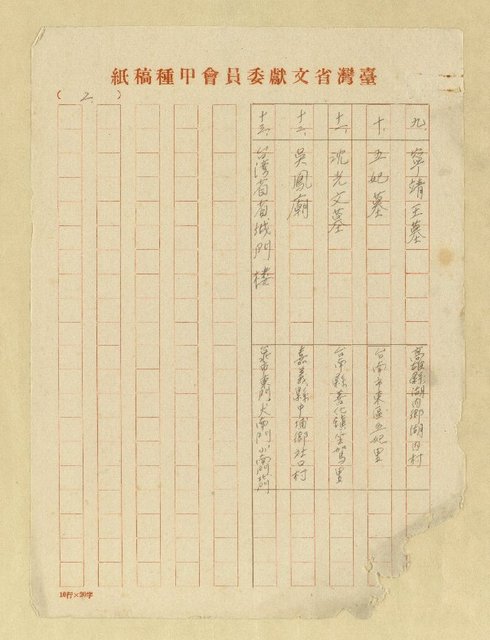 臺灣省文獻委員會甲種稿紙
(2)
九、寧靖王墓 高雄縣湖內鄉湖內村
十、五妃墓 台南市東區五妃里
十一、沈光文墓 台南縣善化鎮坐駕里
十二、吳鳳廟 嘉義縣中埔鄉社口村
十三、台湾省省城門樓 東門大南門小南門北門
10行×20字